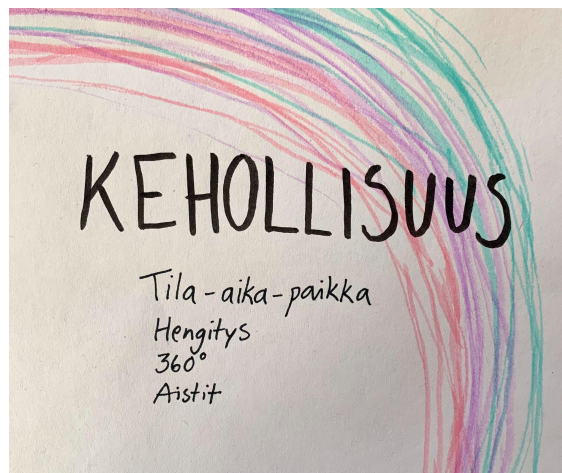 KEHOLLISUUS
Tila-aika-paikka
Hengitys
360°
Aistit